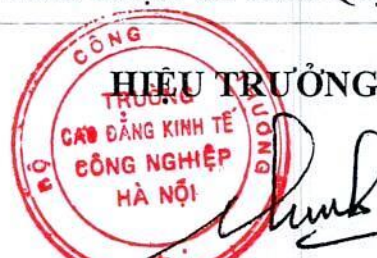 HIỆU TRƯỞNG
BỘ CÔNG THƯƠNG
TRƯỜNG
CAO ĐẲNG KINH TẾ
CÔNG NGHIỆP
HÀ NỘI